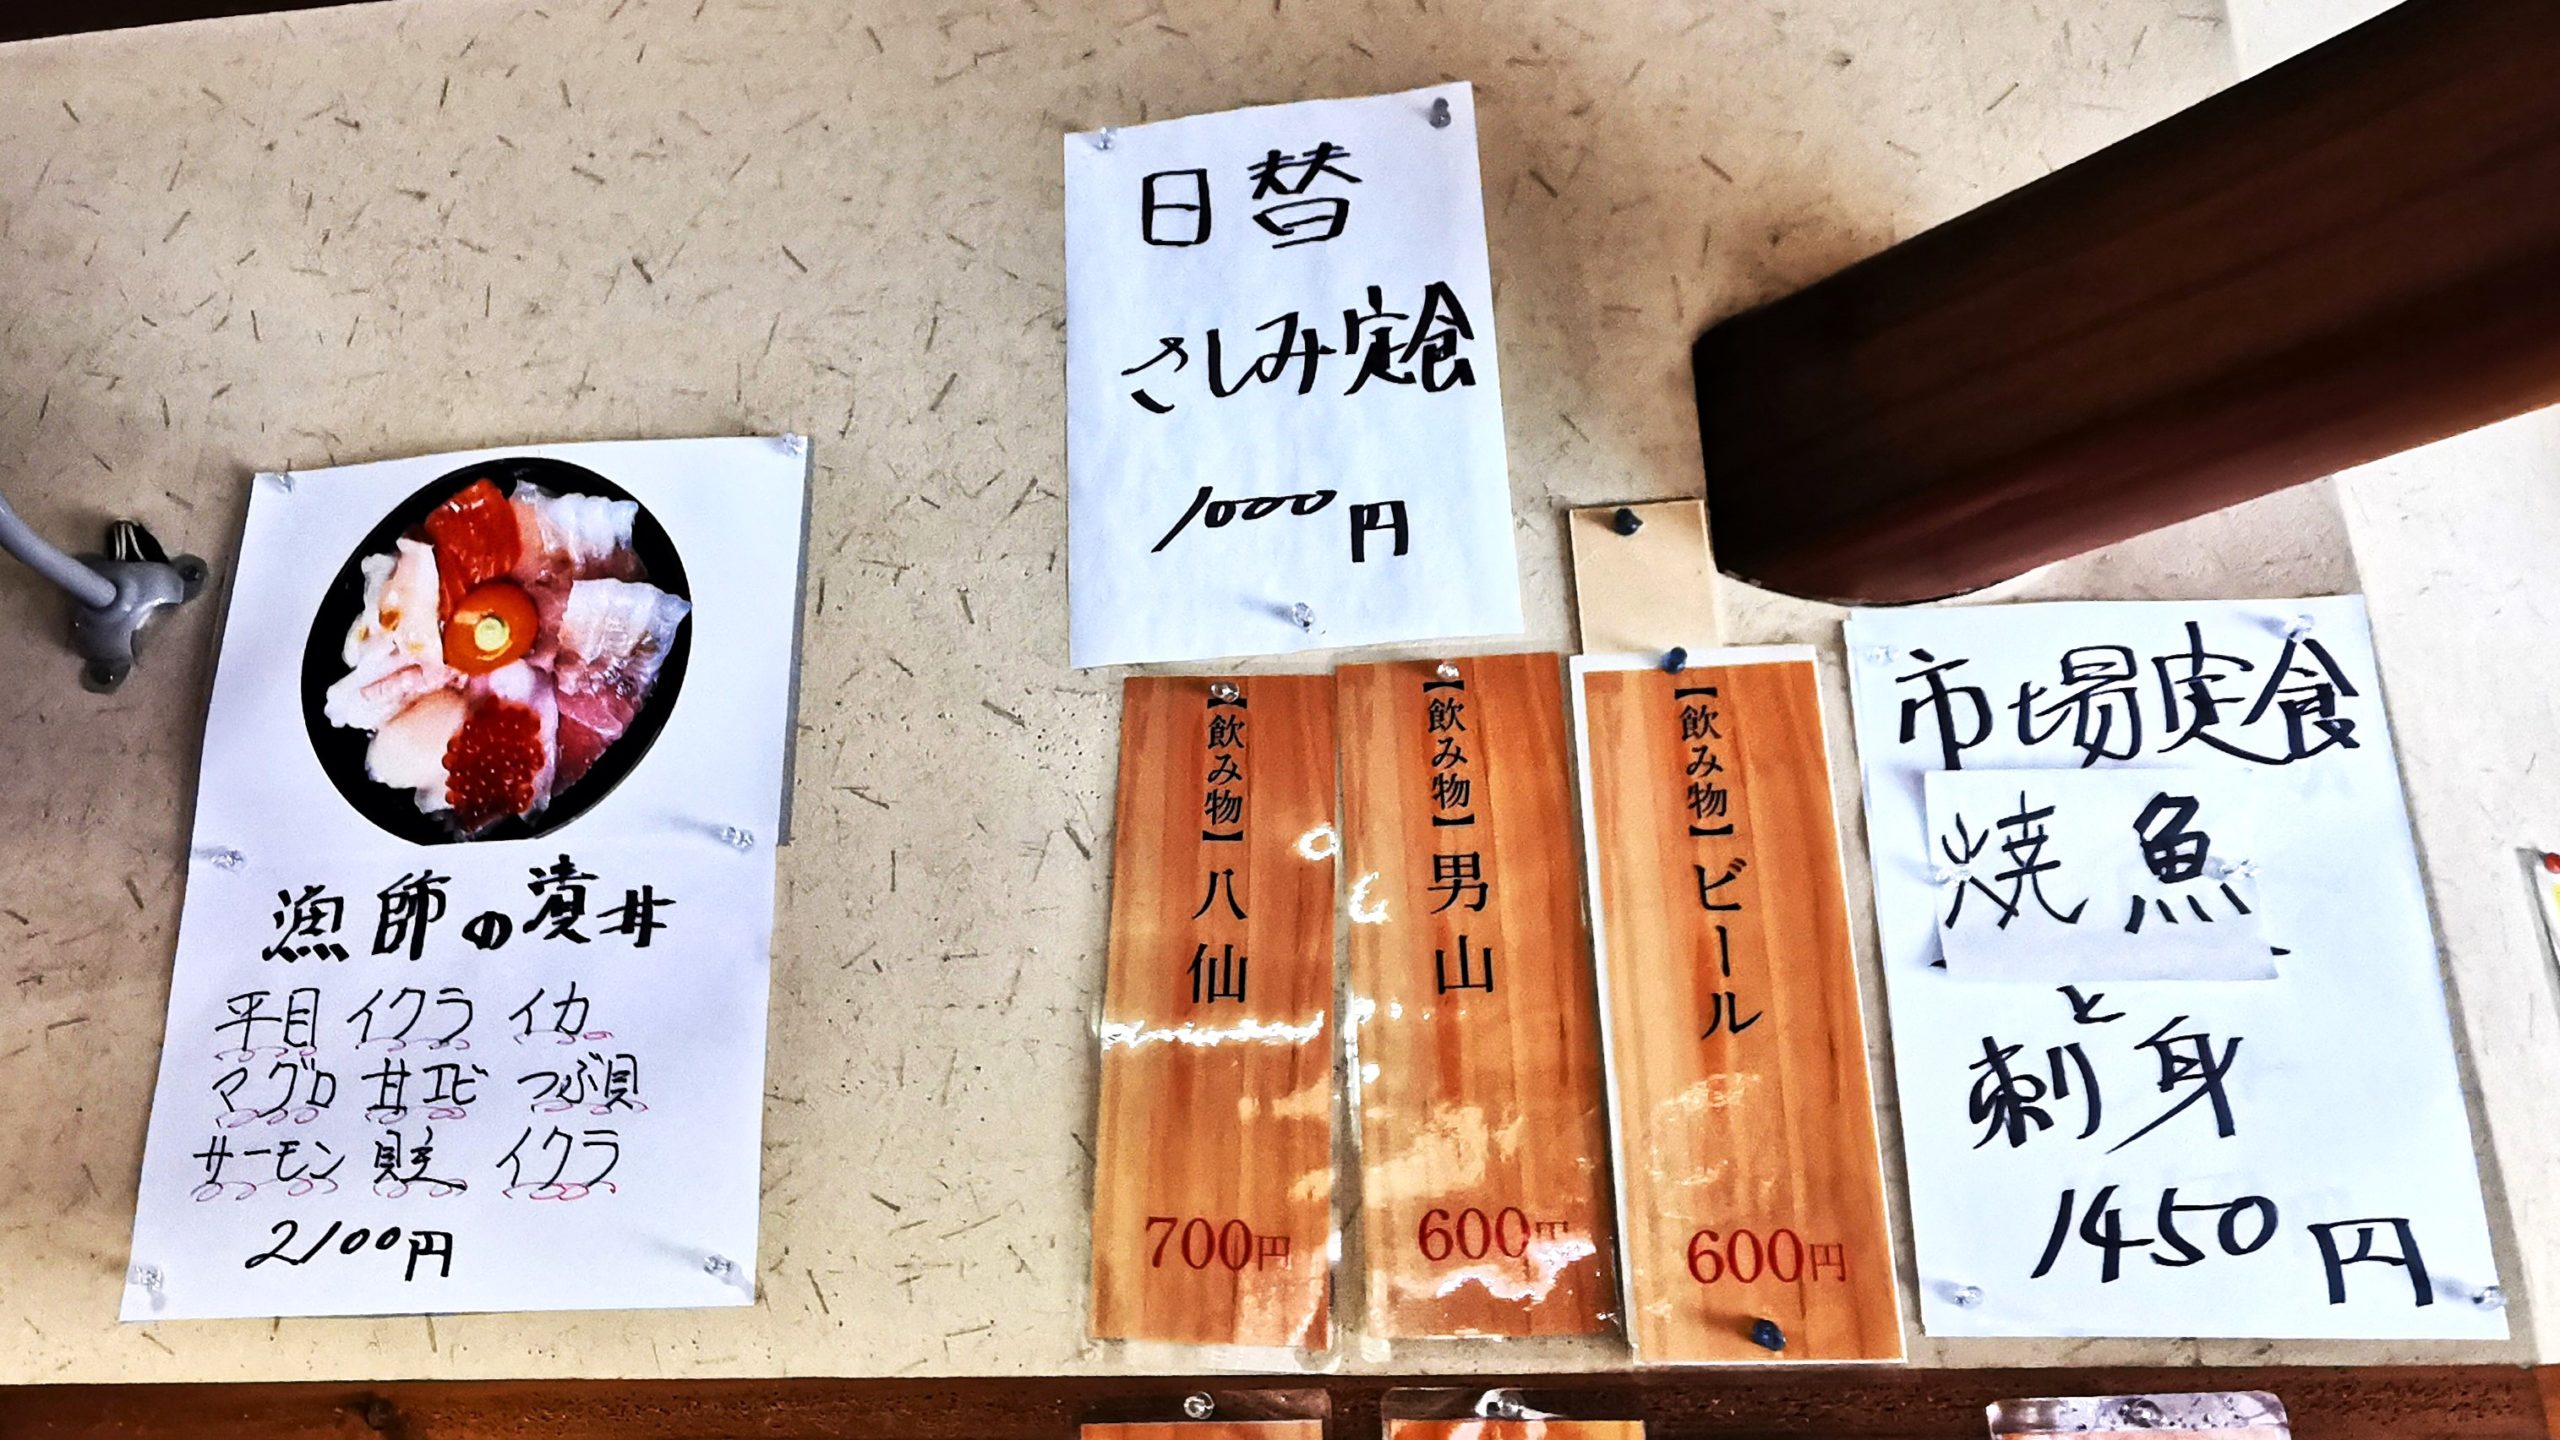 日替
さしみ定食
1000円
漁師の漬丼
平目 イクラ イカ
マグロ 甘エビ つぶ貝
サーモン イクラ
2100円
【飲み物】八仙
700円
【飲み物】男山
600円
【飲み物】ビール
600円
市場定食
焼魚
と
刺身
1450円